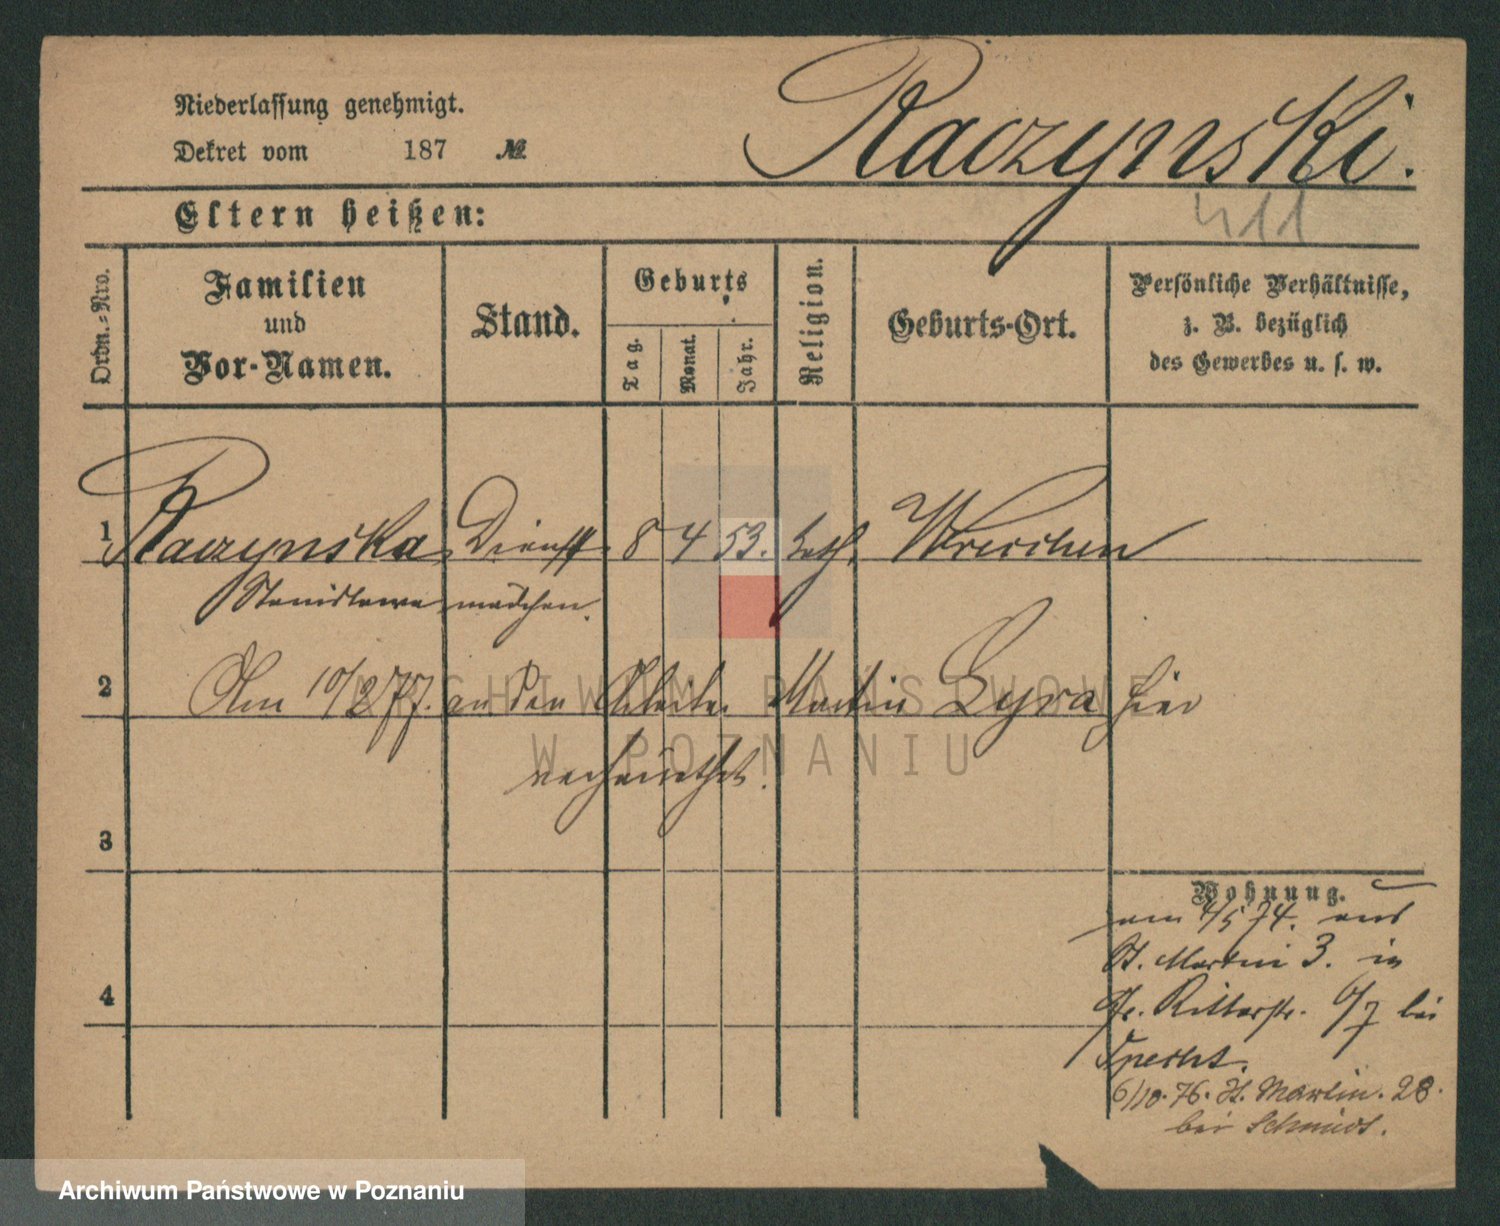 Niederlassung genehmigt.
Dekret vom 187 №
Raczynski.
411
Eltern heißen:
Ordn.-Nro.
Familien
und
Vor-Namen.
Stand.
Geburts
Tag.
Monat.
Jahr.
Religion.
Geburts-Ort.
Persönliche Verhältnisse,
z. B. bezüglich
des Gewerbes u. s. w.
1 Raczynska Dienst 8 4 53. kath. Wreschen
Stanislawa mädchen.
2 Am 10/2 77. an den Arbeiter Martin Lyra hier
verheirathet.
3
4
Wohnung.
am 4/5 74. aus
St. Martin 3. in
Gr. Ritterstr. 6/7 bei
Specht.
6/10. 76. St. Martin. 28.
bei Schmidt.
ARCHIWUM PAŃSTWOWE
W POZNANIU
Archiwum Państwowe w Poznaniu